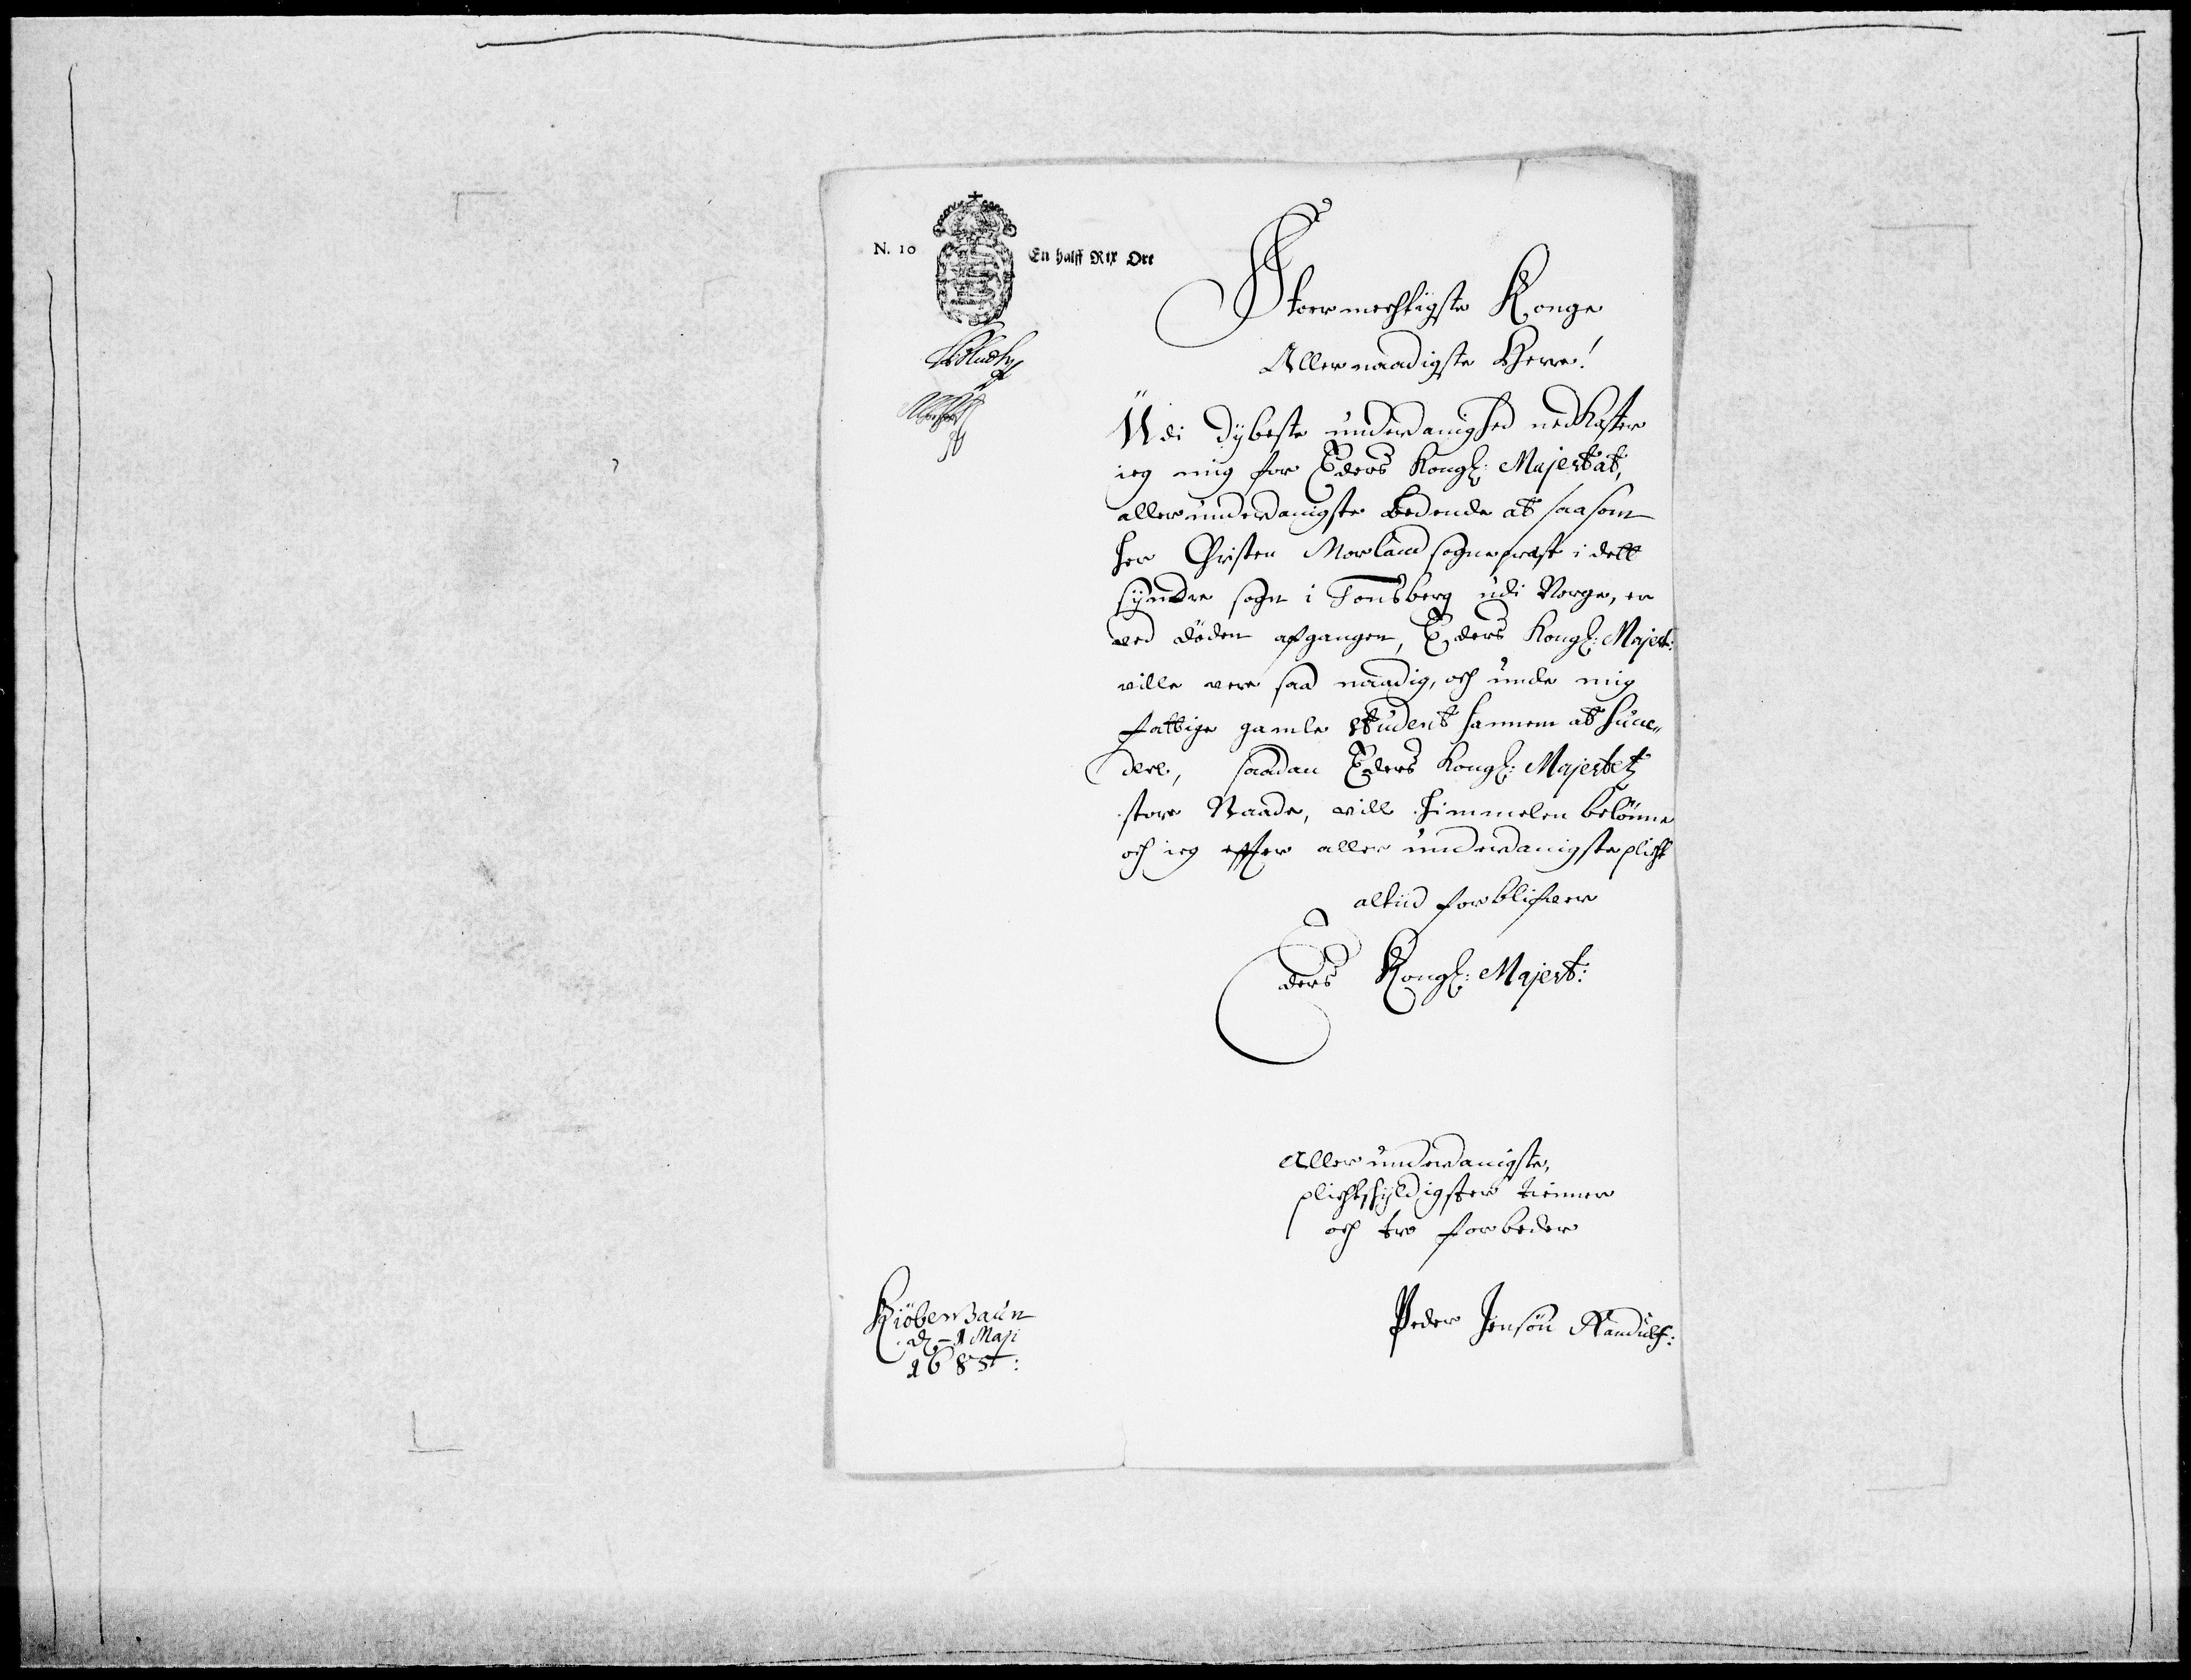 N. 10
En halff Rix Ort
Stoermechtigste Konge
Allernaadigste Herre!
Udi dybeste underdanighed nedkaster
ieg mig for Eders Kongl: Majestät,
allerunderdanigste bedende at saasom
her Christen Morland sognepræst i dett
syndre sogn i Tonsberg udi Norge, er
ved döden afgangen, Eders Kongl: Majest:
ville vere saa naadig, och unde mig
fattige gamle student hannem at succe„
dere, saadan Eders Kongl: Majestetz
store Naade, vill himmelen belönne
och ieg effter aller underdanigste plicht
altiid forblifver
Eders Kongl: Majest:
Allerunderdanigste,
plichtskyldigster tienner
och tro forbeder
Kiöbenhaun
d. 1 Maji
1685:
Peder Jensön Randulf: